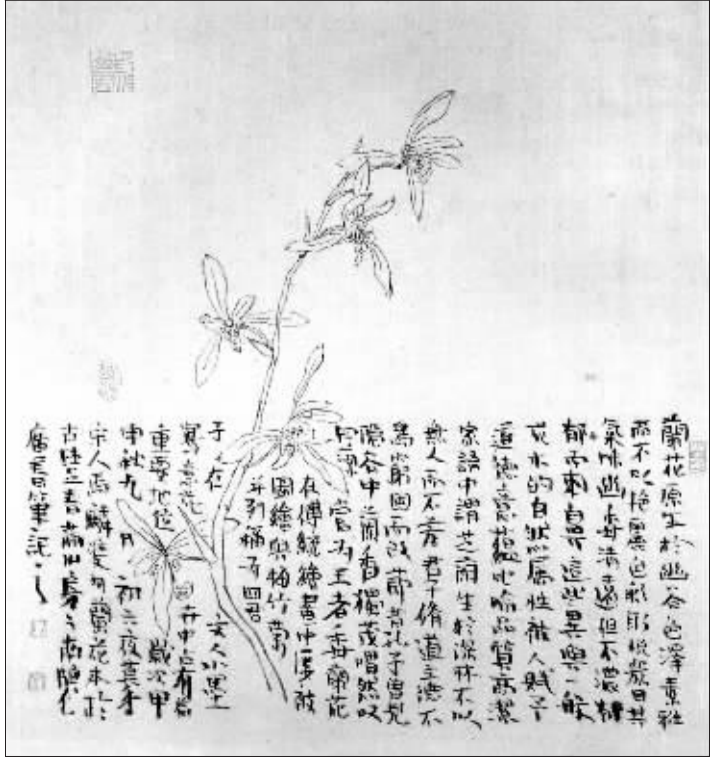 蘭花原生於幽谷色澤素雅
而不以艷麗色彩形貌其
氣味幽香清遠但不濃
郁而刺鼻這些異與一般
花木的自然屬性被人賦予
道德意蘊比喻品質高潔
家語中謂芝蘭生於深林不以
無人而不芳君子脩道立德不
為窮困而改節昔孔子見
隱谷中蘭香獨茂喟然歎
曰蘭當為王者香蘭花
在傳統繪畫中被
圖繪與梅竹菊
並列稱為四君
子在文人水墨
寫意花卉中占有著
重要地位歲次甲
申秋九月初六夜
宋人馬麟雙勾蘭花本於
古
廬筆記之